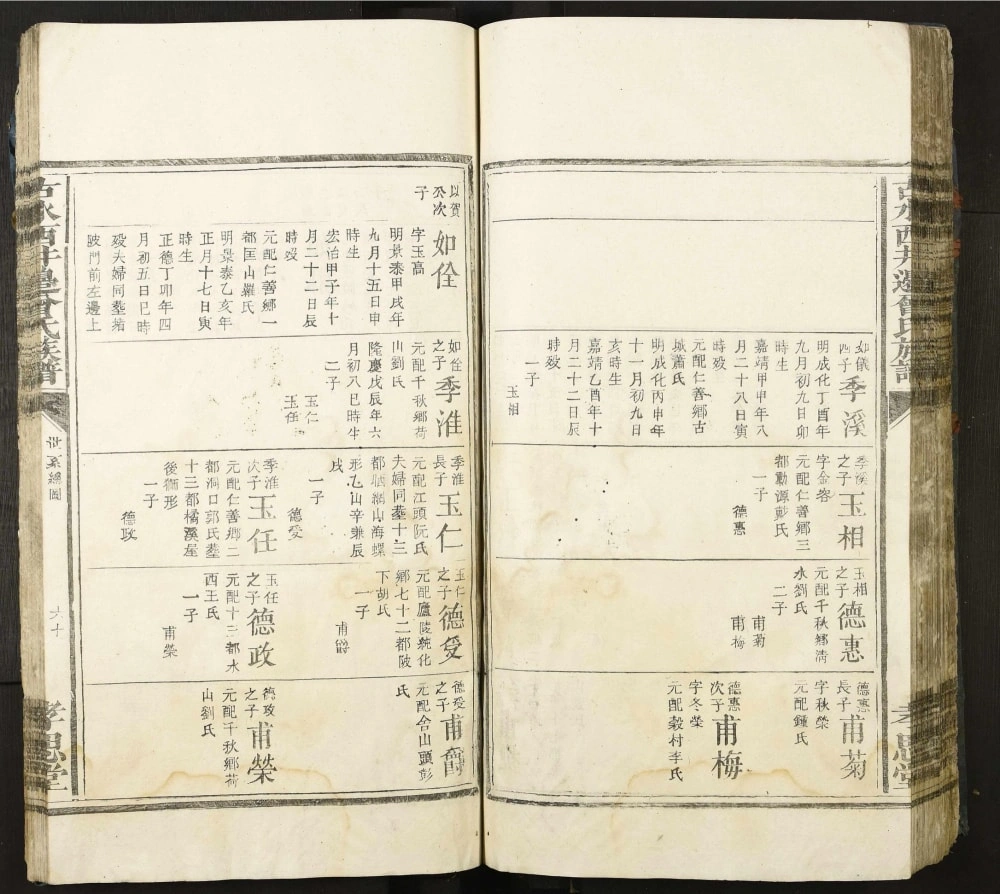 吉水西井邊曾氏族譜
孝思堂
如儀
四子
季溪
明成化丁酉年
九月初九日卯
時生
嘉靖甲申年八
月二十八日寅
時歿
元配仁善鄉古
城蕭氏
明成化丙申年
十一月初九日
亥時生
嘉靖乙酉年十
月二十二日辰
時歿
一子
玉相
季溪
之子
玉相
字金容
元配仁善鄉三
都勳源彭氏
一子
德惠
玉相
之子
德惠
元配千秋鄉清
水劉氏
二子
甫菊
甫梅
德惠
長子
甫菊
字秋榮
元配鍾氏
德惠
次子
甫梅
字冬榮
元配穀村李氏
以賀
公次
子
如佺
字玉高
明景泰甲戌年
九月十五日申
時生
宏治甲子年十
月二十二日辰
時歿
元配仁善鄉一
都匡山羅氏
明景泰乙亥年
正月十七日寅
時生
正德丁卯年四
月初五日巳時
歿夫婦同塟豬
陂門前左邊上
如佺
之子
季淮
元配千秋鄉荷
山劉氏
隆慶戊辰年六
月初八巳時生
二子
玉仁
玉任
季淮
長子
玉仁
元配江頭阮氏
夫婦同塟十三
都山海螺
形乙山辛兼辰
戌
一子
德受
季淮
次子
玉任
元配仁善鄉二
都洞口郭氏塟
十三都橘溪屋
後獅形
一子
德政
玉仁
之子
德受
元配廬陵統化
鄉七十二都陂
下胡氏
一子
甫爵
玉任
之子
德政
元配十三都水
西王氏
一子
甫榮
德受
之子
甫爵
元配合山頭彭
氏
德政
之子
甫榮
元配千秋鄉荷
山劉氏
吉水西井邊曾氏族譜
世系總圖
六十
孝思堂